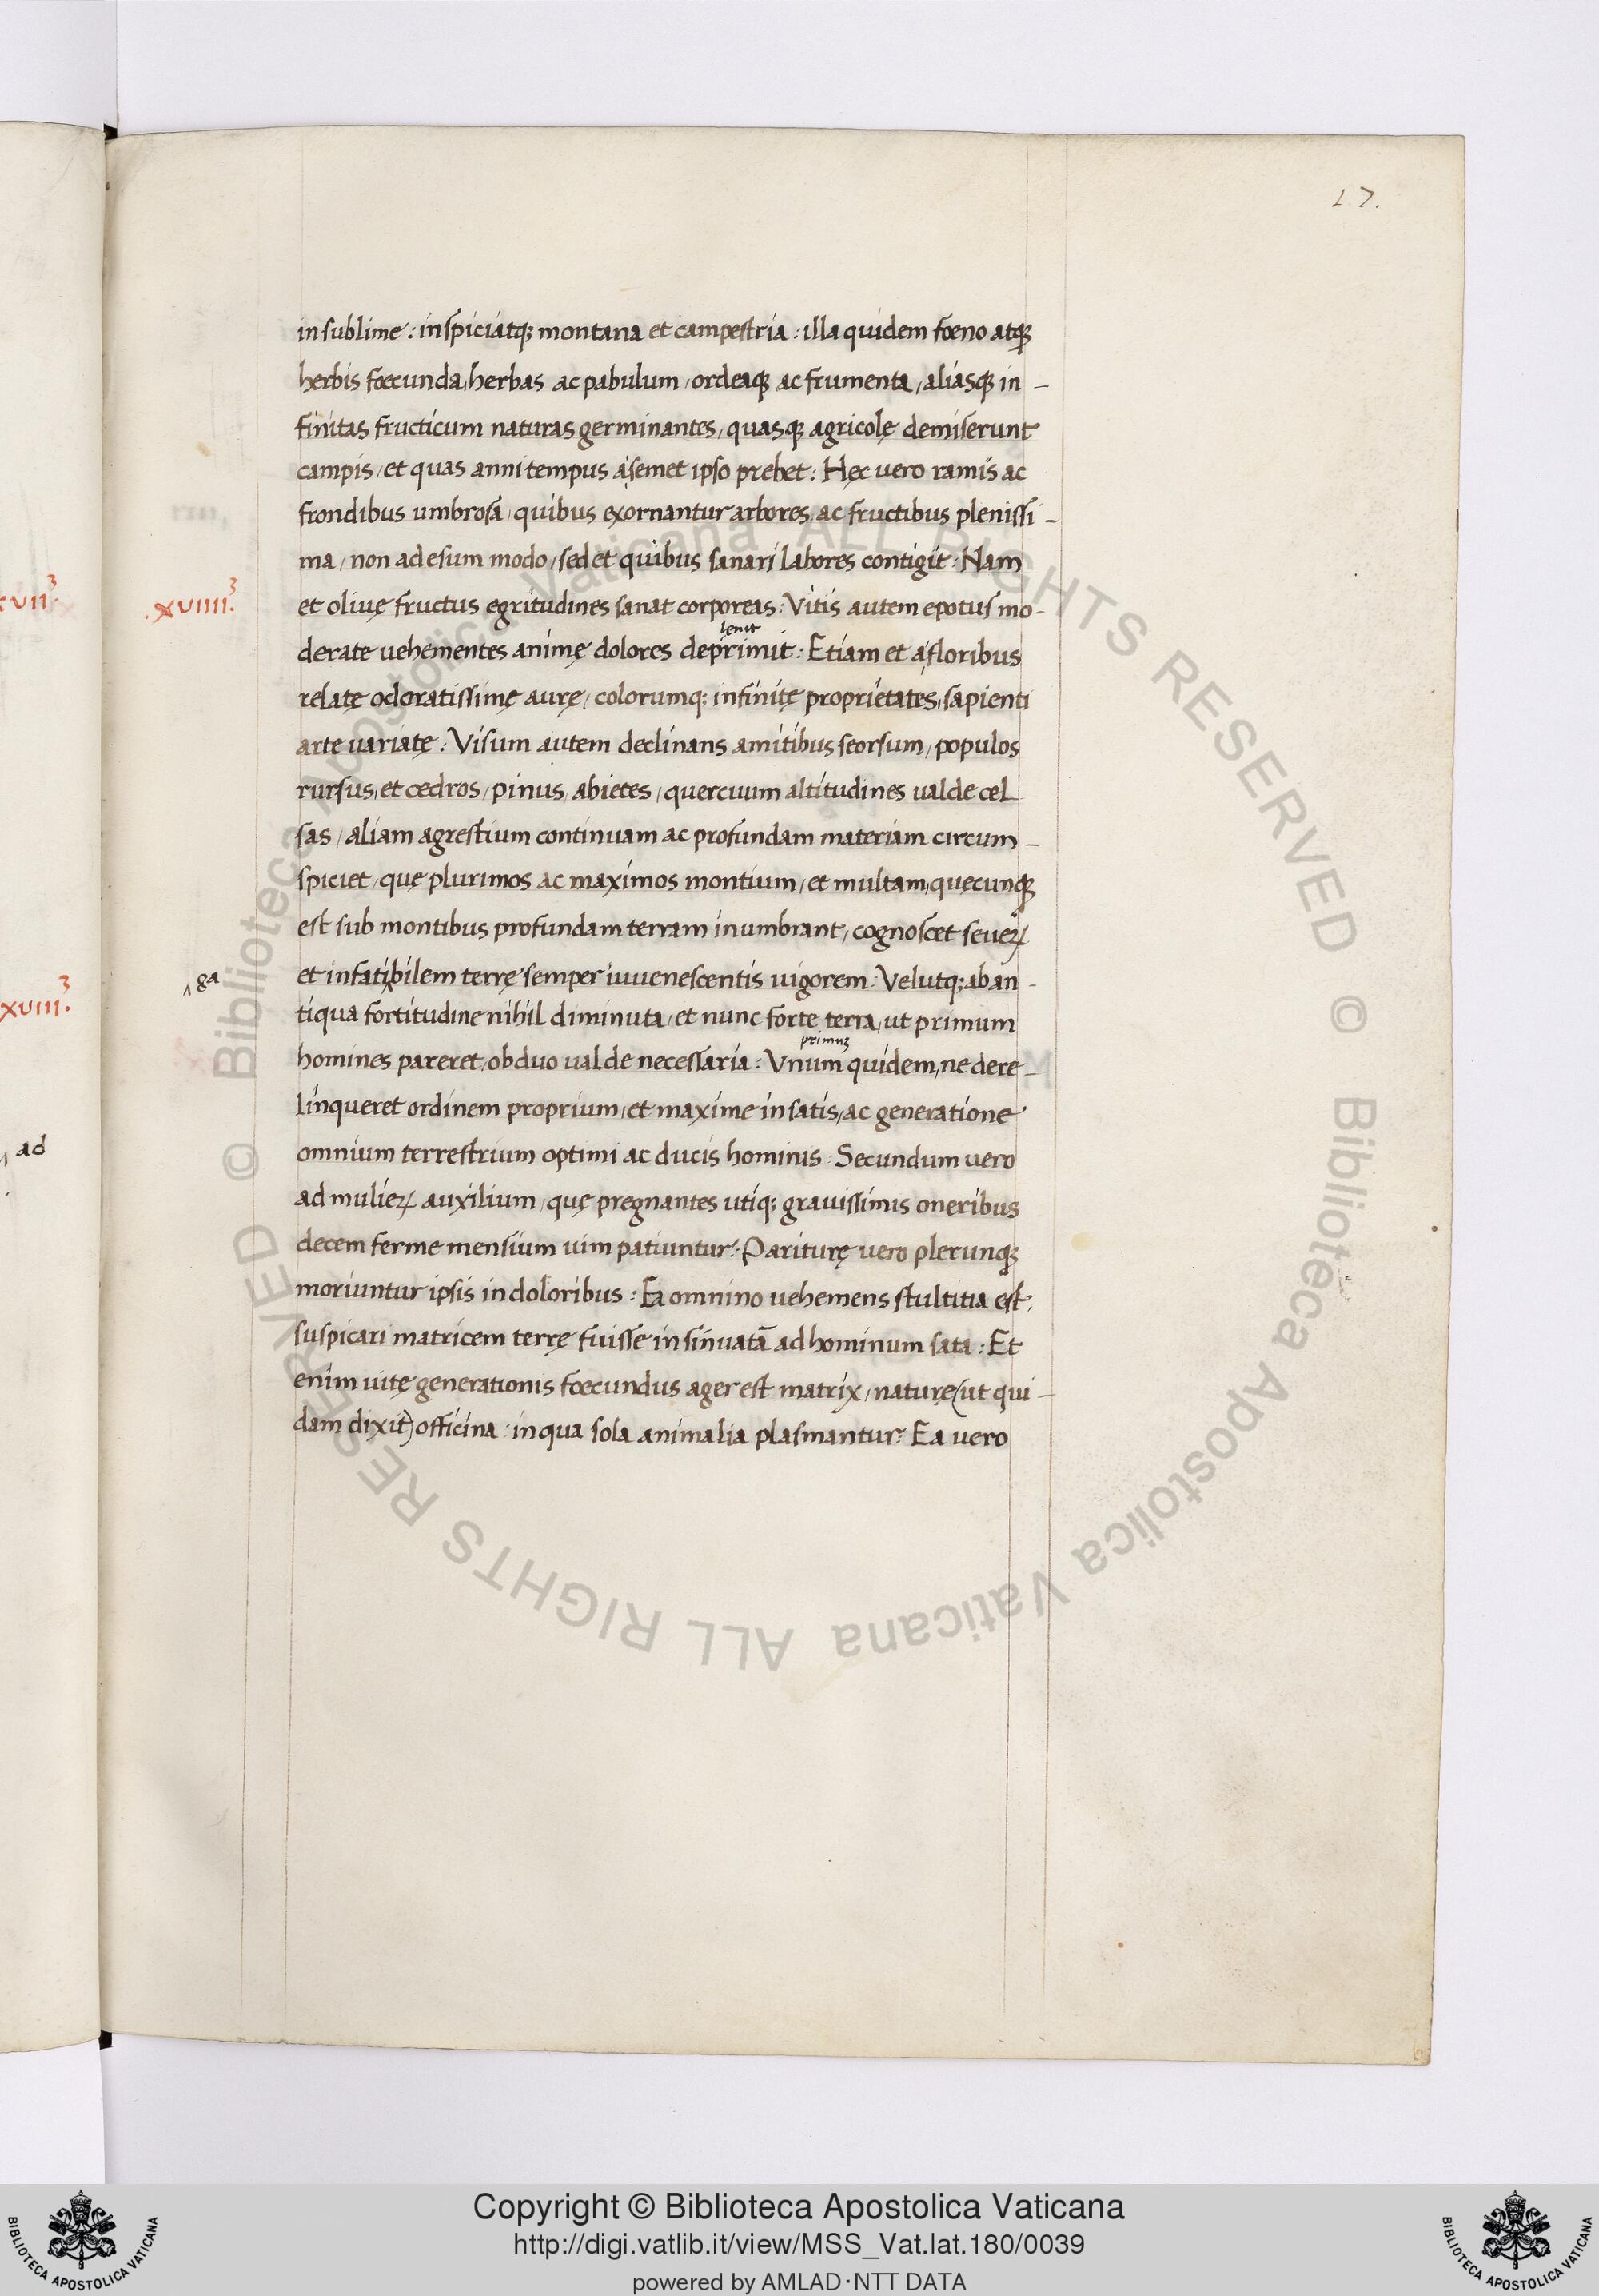 17.
in sublime: inspiciatq; montana et campestria: illa quidem foeno atq;
herbis foecunda, herbas ac pabulum, ordeaq; ac frumenta, aliasq; in-
finitas fructicum naturas germinantes, quasq; agricolę demiserunt
campis, et quas anni tempus a semet ipso prebet: Hęc vero ramis ac
frondibus umbrosa, quibus exornantur arbores, ac fructibus plenissi-
ma, non ad esum modo, sed et quibus sanari labores contigit: Nam
.xviiii.3
et oliuę fructus egritudines sanat corporeas: Vitis autem epotus mo-
lenit
derate uehementes animę dolores deprimit: Etiam et a floribus
relatę odoratissimę aurę, colorumq; infinitę proprietates, sapienti
arte uariatę: Visum autem declinans amitibus seorsum, populos
rursus, et cedros, pinus, abietes, quercuum altitudines ualde cel
sas, aliam agrestium continuam ac profundam materiam circum-
spiciet, quę plurimos ac maximos montium, et multam, quęcunq;
est sub montibus profundam terram inumbrant, cognoscet seueꝝ
ga
et infatibilem terrę semper iuuenescentis uigorem: Velutq; ab an-
tiqua fortitudine nihil diminuta, et nunc forte terra, ut primum
primuȝ
homines pareret, ob duo ualde necessaria: Vnum quidem, ne dere-
linqueret ordinem proprium, et maxime in satis, ac generatione
omnium terrestrium optimi ac ducis hominis: Secundum vero
ad mulieꝝ auxilium, quę pregnantes utiq; grauissimis oneribus
decem ferme mensium uim patiuntur: Pariturę vero plerunq;
moriuntur ipsis in doloribus: Ea omnino uehemens stultitia est,
suspicari matricem terrę fuisse insinuatā ad hominum sata: Et
enim uitę generationis foecundus ager est matrix, naturę (ut qui-
dam dixit) officina: in qua sola animalia plasmantur: Ea vero
xvii.3
xviii.3
ad
© Biblioteca Apostolica Vaticana ALL RIGHTS RESERVED © Biblioteca Apostolica Vaticana ALL RIGHTS RESERVED
Copyright © Biblioteca Apostolica Vaticana
http://digi.vatlib.it/view/MSS_Vat.lat.180/0039
powered by AMLAD·NTT DATA
BIBLIOTECA APOSTOLICA VATICANA
BIBLIOTECA APOSTOLICA VATICANA